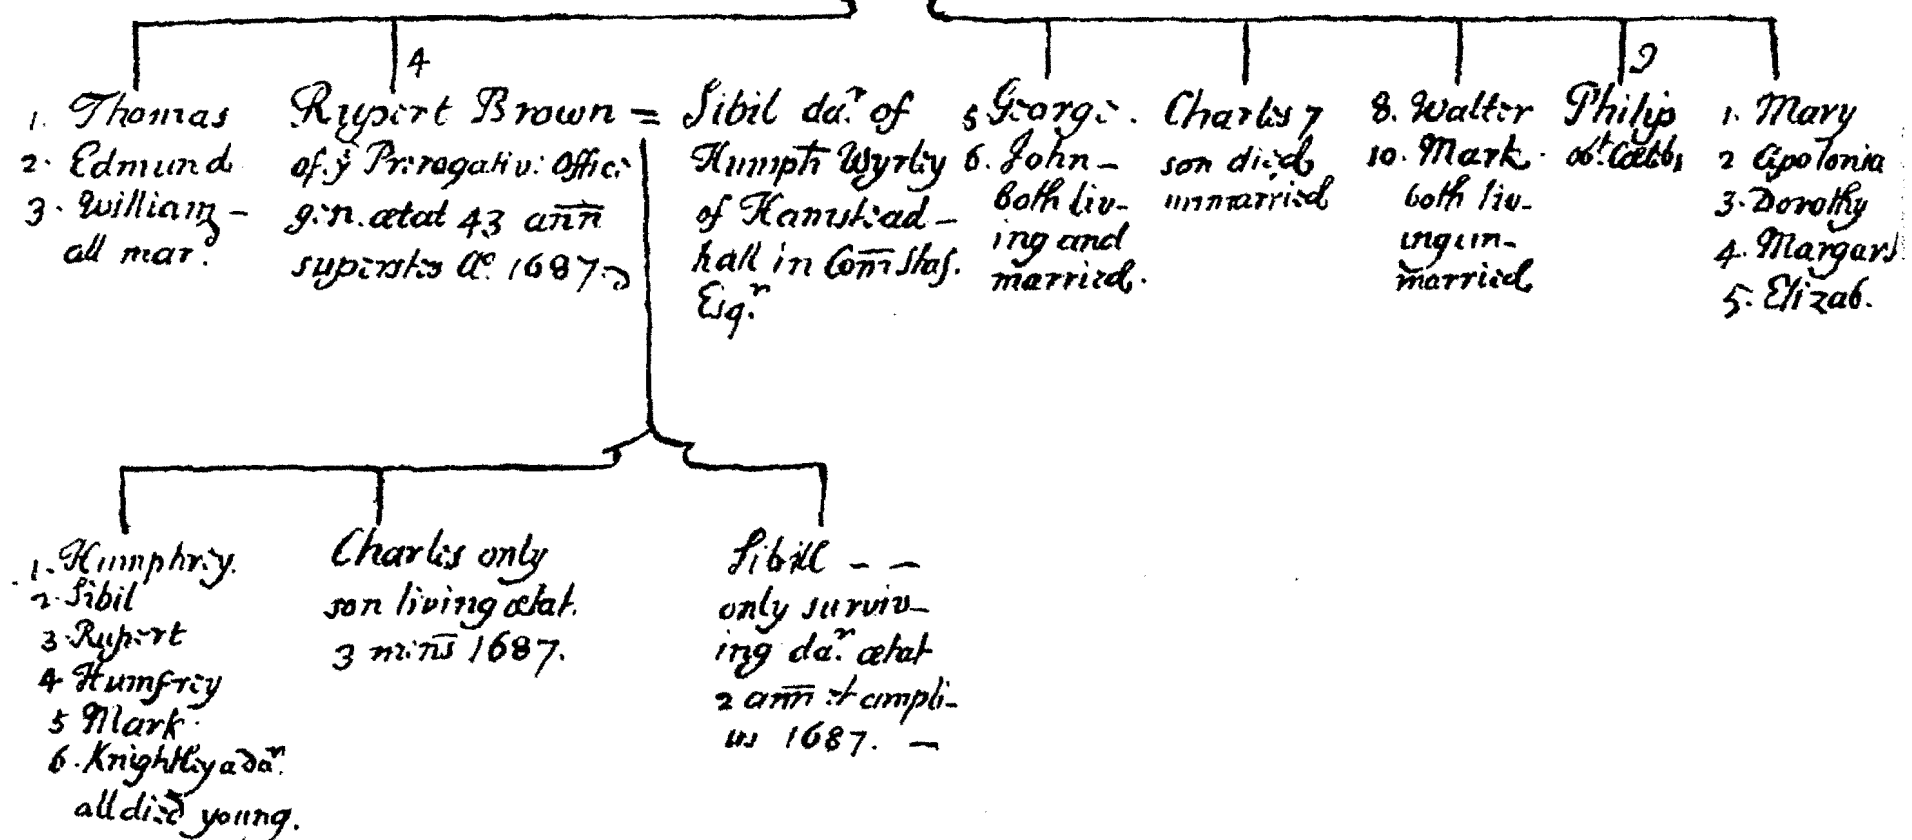 4
9
1. Thomas
2. Edmund
3. William
all mar.
Rupert Brown =
of yͤ Prerogative Office
gen. ætat 43 ann̄
superstes Aº. 1687.
Sibil daʳ. of
Humph̄ Wyrley
of Hamstead-
hall in Com̄ Staf.
Esqʳ.
5 George.
6. John -
both liv-
ing and
married.
Charles 7
son died
unmarried
8. Walter
10. Mark.
both liv-
ing un-
married
Philip
obᵗ. Cœlebs
1. Mary
2 Apolonia
3. Dorothy
4. Margart
5. Elizab.
1. Humphrey.
2. Sibil
3. Rupert
4 Humfrey
5 Mark.
6. Knightley a daʳ.
all died young.
Charles only
son living ætat.
3 mens̄ 1687.
Sibill - -
only surviv-
ing daʳ. ætat
2 ann̄ et ampli-
us 1687. -